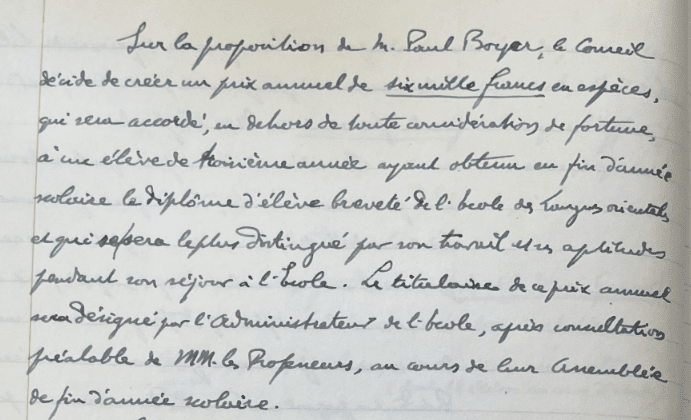 Sur la proposition de M. Paul Boyer, le Conseil
décide de créer un prix annuel de six mille francs en espèces,
qui sera accordé, en dehors de toute considération de fortune,
à une élève de troisième année ayant obtenu en fin d'année
scolaire le diplôme d'élève breveté de l'École des Langues orientales
et qui se sera le plus distingué par son travail et ses aptitudes
pendant son séjour à l'École. Le titulaire de ce prix annuel
sera désigné par l'Administrateur de l'École, après consultation
préalable de MM. les Professeurs, au cours de leur Assemblée
de fin d'année scolaire.